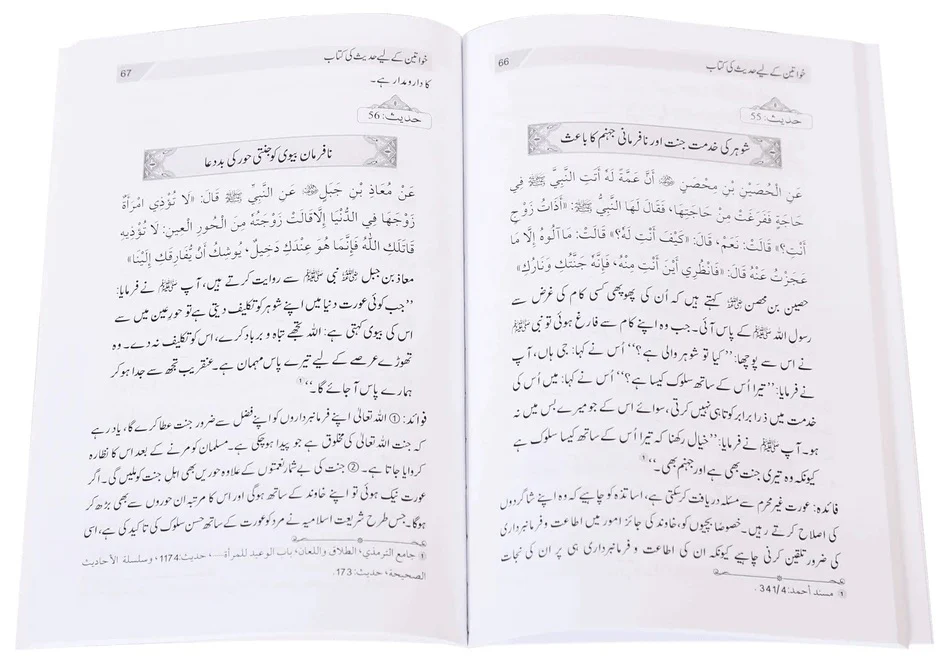 66
خواتین کے لیے حدیث کی کتاب
حدیث: 55
شوہر کی خدمت جنت اور نافرمانی جہنم کا باعث
عَنِ الْحُصَيْنِ بْنِ مِحْصَنٍ ؓ أَنَّ عَمَّةً لَهُ أَتَتِ النَّبِيَّ ﷺ فِي
حَاجَةٍ فَفَرَغَتْ مِنْ حَاجَتِهَا، فَقَالَ لَهَا النَّبِيُّ ﷺ: «أَذَاتُ زَوْجٍ
أَنْتِ؟» قَالَتْ: نَعَمْ، قَالَ: «كَيْفَ أَنْتِ لَهُ؟» قَالَتْ: مَا آلُوهُ إِلَّا مَا
عَجَزْتُ عَنْهُ قَالَ: «فَانْظُرِي أَيْنَ أَنْتِ مِنْهُ، فَإِنَّهُ جَنَّتُكِ وَنَارُكِ»
حصین بن محصن ؓ کہتے ہیں کہ اُن کی پھوپھی کسی کام کی غرض سے
رسول اللہ ﷺ کے پاس آئی۔ جب وہ اپنے کام سے فارغ ہوئی تو نبی ﷺ
نے اس سے پوچھا: ’’کیا تو شوہر والی ہے؟‘‘ اُس نے کہا: جی ہاں، آپ
نے فرمایا: ’’تیرا اُس کے ساتھ سلوک کیسا ہے؟‘‘ اُس نے کہا: میں اُس کی
خدمت میں ذرا برابر کوتاہی نہیں کرتی، سوائے اس کے جو میرے بس میں نہ
ہو۔ آپ ﷺ نے فرمایا: ’’خیال رکھنا کہ تیرا اُس کے ساتھ کیسا سلوک ہے
کیونکہ وہ تیری جنت بھی ہے اور جہنم بھی۔‘‘①
فائدہ: عورت غیر محرم سے مسئلہ دریافت کر سکتی ہے، اساتذہ کو چاہیے کہ وہ اپنے شاگردوں
کی اصلاح کرتے رہیں۔ خصوصا بچیوں کو، خاوند کی جائز امور میں اطاعت و فرمانبرداری
کی ضرور تلقین کرنی چاہیے کیونکہ ان کی اطاعت و فرمانبرداری ہی پر ان کی نجات
① مسند أحمد: 341/4.
67
خواتین کے لیے حدیث کی کتاب
کا دارومدار ہے۔
حدیث: 56
نافرمان بیوی کو جنتی حور کی بددعا
عَنْ مُعَاذِ بْنِ جَبَلٍ ؓ عَنِ النَّبِيِّ ﷺ قَالَ: «لَا تُؤْذِي امْرَأَةٌ
زَوْجَهَا فِي الدُّنْيَا إِلَّا قَالَتْ زَوْجَتُهُ مِنَ الْحُورِ الْعِينِ: لَا تُؤْذِيهِ
قَاتَلَكِ اللهُ فَإِنَّمَا هُوَ عِنْدَكِ دَخِيلٌ، يُوشِكُ أَنْ يُفَارِقَكِ إِلَيْنَا»
معاذ بن جبل ؓ نبی ﷺ سے روایت کرتے ہیں، آپ ﷺ نے فرمایا:
’’جب کوئی عورت دنیا میں اپنے شوہر کو تکلیف دیتی ہے تو حور عین میں سے
اس کی بیوی کہتی ہے: اللہ تجھے تباہ و برباد کرے، اس کو تکلیف نہ دے۔ وہ
تھوڑے عرصے کے لیے تیرے پاس مہمان ہے۔ عنقریب تجھ سے جدا ہو کر
ہمارے پاس آ جائے گا۔‘‘①
فوائد: ① اللہ تعالیٰ اپنے فرمانبرداروں کو اپنے فضل سے ضرور جنت عطا کرے گا، یاد رہے
کہ جنت اللہ تعالیٰ کی مخلوق ہے جو پیدا ہو چکی ہے۔ مسلمان کو مرنے کے بعد اس کا نظارہ
کروایا جاتا ہے۔ ② جنت کی بے شمار نعمتوں کے علاوہ حوریں بھی اہل جنت کو ملیں گی۔ اگر
عورت نیک ہوئی تو اپنے خاوند کے ساتھ ہوگی اور اس کا مرتبہ ان حوروں سے بھی بڑھ کر
ہوگا۔ جس طرح شریعت اسلامیہ نے مرد کو عورت کے ساتھ حسن سلوک کی تاکید کی ہے، اسی
① جامع الترمذي، الطلاق واللعان، باب الوعيد للمرأة...، حديث: 1174، وسلسلة الأحاديث
الصحيحة، حديث: 173.